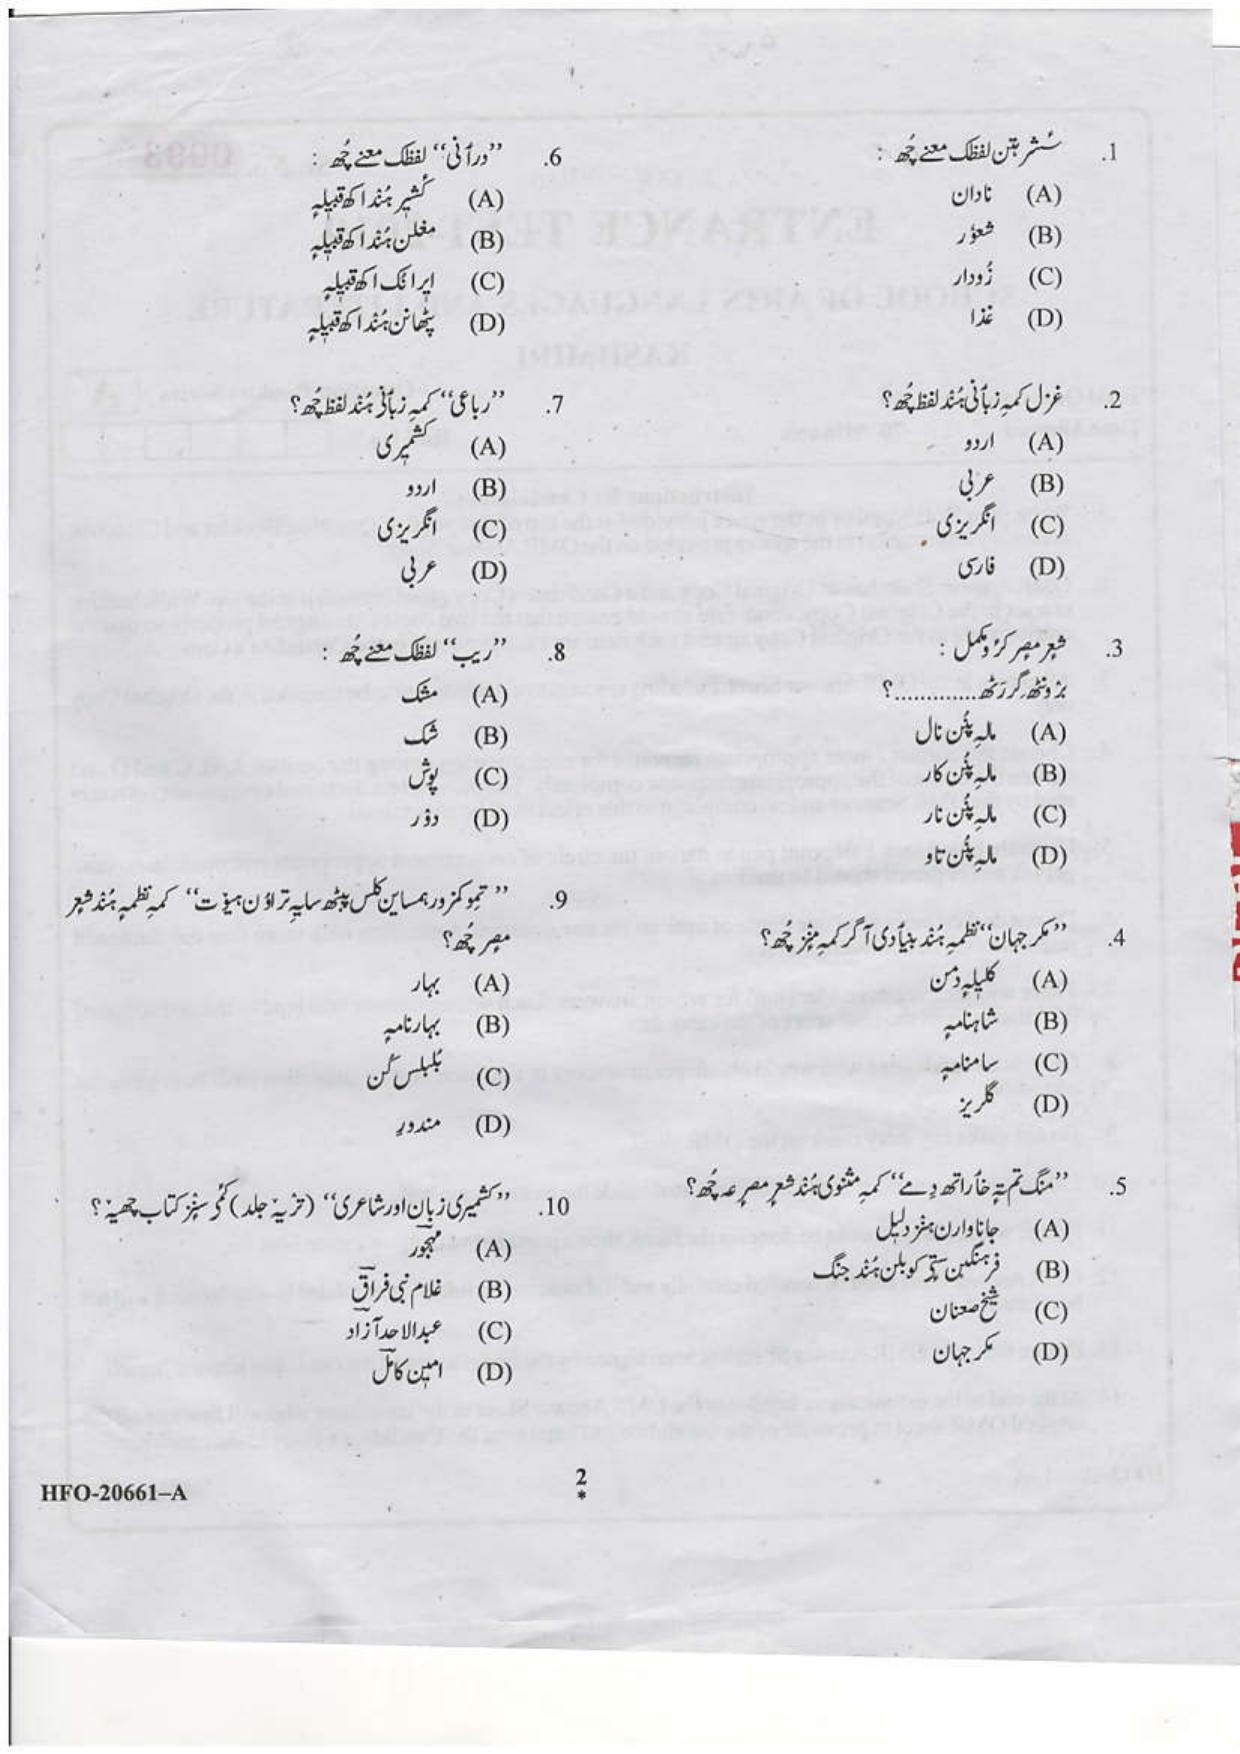 1. سُشر بتن لفظک معنے چُھ :
(A) نادان
(B) شعوٗر
(C) زُودار
(D) غذا
2. غزل کمہِ زبٲنی ہُند لفظ چُھ؟
(A) اردو
(B) عربی
(C) انگریزی
(D) فارسی
3. شعر مصرِ کرٛو مکمل :
برٛونٹھ گژرتھ.............؟
(A) مالہِ پنُن نال
(B) مالہِ پنُن کار
(C) مالہِ پنُن نار
(D) مالہِ پنُن تاو
4. ’’مکر جہان‘‘ نظمہِ ہُند بنیٲدی آگر کمہِ منٛز چُھ؟
(A) کلیلہ دمن
(B) شاہنامہٕ
(C) سامنامہٕ
(D) گلریز
5. ’’منگ تم تہٕ خٲراتھ دِمے‘‘ کمہِ مثنوی ہُند شعر مصرعہ چُھ؟
(A) جاناوارن ہنز دلیل
(B) فرہنگین تہٕ کوبلن ہُند جنگ
(C) شیخ صعنان
(D) مکر جہان
6. ’’درٲنی‘‘ لفظک معنے چُھ :
(A) کٔشیرِ ہُند اکھ قبیلہٕ
(B) مغلن ہُند اکھ قبیلہٕ
(C) ایرانُک اکھ قبیلہٕ
(D) پٹھانن ہُند اکھ قبیلہٕ
7. ’’رباعی‘‘ کمہِ زبٲنی ہُند لفظ چُھ؟
(A) کشمیری
(B) اردو
(C) انگریزی
(D) عربی
8. ’’ریب‘‘ لفظک معنے چُھ :
(A) مشک
(B) شک
(C) پوش
(D) دوٗر
9. ’’تمو کمزور ہمساین کلس پیٹھ سایہِ تراوُن ہیوٚت‘‘ کمہِ نظمہِ ہُند شعر
مصرِ چُھ؟
(A) بہار
(B) بہارنامہٕ
(C) بُلبلس کُن
(D) مندورِ
10. ’’کشمیری زبان اور شاعری‘‘ (ترٛیہ جلد) کٔمۍ سٕنز کتاب چھیہٕ؟
(A) مہجور
(B) غلام نبی فراق
(C) عبدالاحد آزاد
(D) امین کامل
HFO-20661–A
2
*